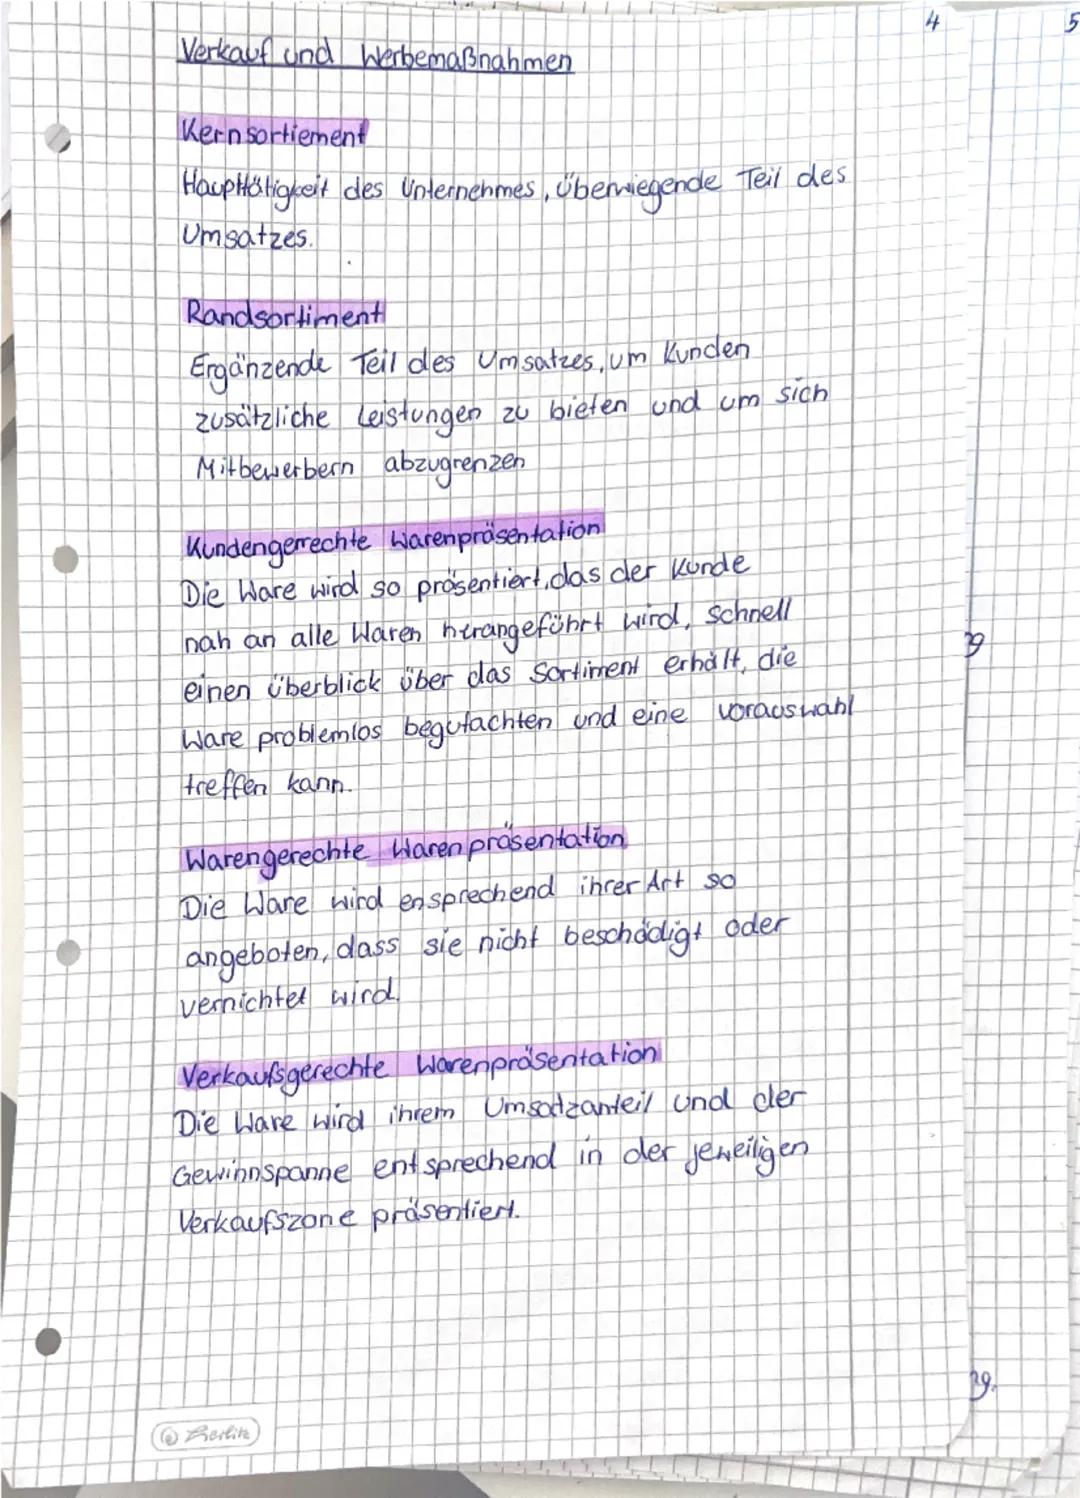 4
5
Verkauf und Werbemaßnahmen
Kernsortiement
Haupttätigkeit des Unternehmes, überwiegende Teil des
Umsatzes.
Randsortiment
Ergänzende Teil des Umsatzes, um Kunden
zusätzliche Leistungen zu bieten und um sich
Mitbewerbern abzugrenzen
Kundengerrechte Warenpräsentation
Die Ware wird so präsentiert, das der Kunde
nah an alle Waren herangeführt wird, schnell
einen überblick über das Sortiment erhält, die
Ware problemlos begutachten und eine vorauswahl
treffen kann.
Warengerechte Warenpräsentation
Die Ware wird ensprechend ihrer Art so
angeboten, dass sie nicht beschädigt oder
vernichtet wird.
Verkaufsgerechte Warenpräsentation
Die Ware wird ihrem Umsatzanteil und der
Gewinnspanne entsprechend in der jeweiligen
Verkaufszone präsentiert.
Herlitz